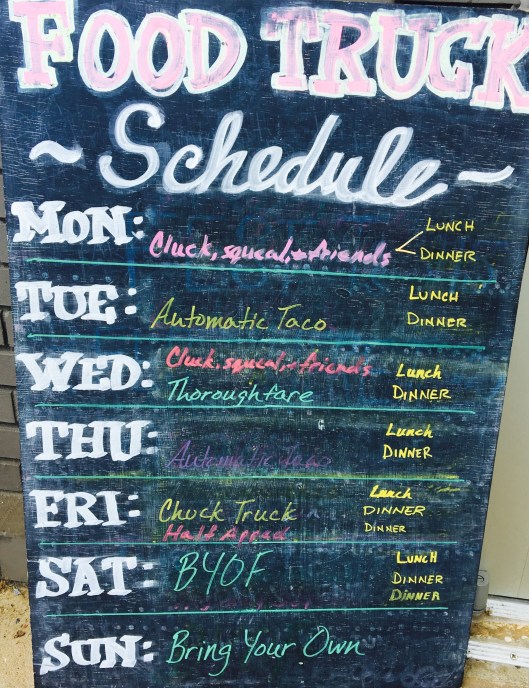 FOOD TRUCK
~ Schedule ~
MON: Cluck, squeal, + friends LUNCH
DINNER
TUE: LUNCH
Automatic Taco DINNER
WED: Cluck, squeal, + friends Lunch
Thoroughfare DINNER
THU: Lunch
Automatic Taco DINNER
FRI: Lunch
Chuck Truck DINNER
Half Apped DINNER
SAT: BYOF LUNCH
DINNER
DINNER
SUN: Bring Your Own